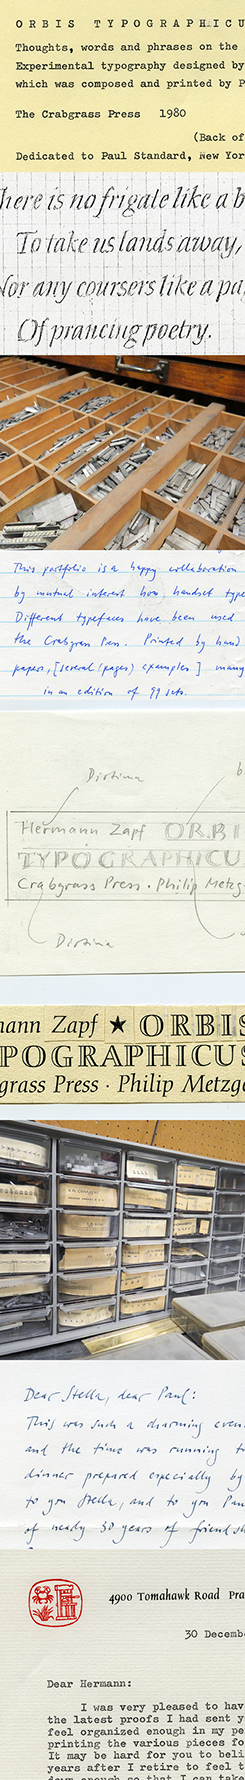 ORBIS TYPOGRAPHICU
Thoughts, words and phrases on the
Experimental typography designed by
which was composed and printed by P
The Crabgrass Press 1980
(Back of
Dedicated to Paul Standard, New Yor
here is no frigate like a b
To take us lands away,
Nor any coursers like a pa
Of prancing poetry.
This portfolio is a happy collaboration
by mutual interest how handset type
Different typefaces have been used
the Crabgrass Press. Printed by hand
papers, [several (pages) examples] many
in an edition of 99 sets.
Diotima
b
Hermann Zapf ORBI
TYPOGRAPHICU
Crabgrass Press · Philip Metzg
Diotima
mann Zapf ★ ORBIS
POGRAPHICUS
grass Press · Philip Metzge
Dear Stella, dear Paul:
This was such a charming even
and the time was running to
dinner prepared especially by
to you Stella, and to you Pau
of nearly 30 years of friendsh
4900 Tomahawk Road Pra
30 Decembe
Dear Hermann:
I was very pleased to hav
the latest proofs I had sent y
feel organized enough in my pe
printing the various pieces fo
It may be hard for you to beli
years after I retire to feel t
down enough so that I can take